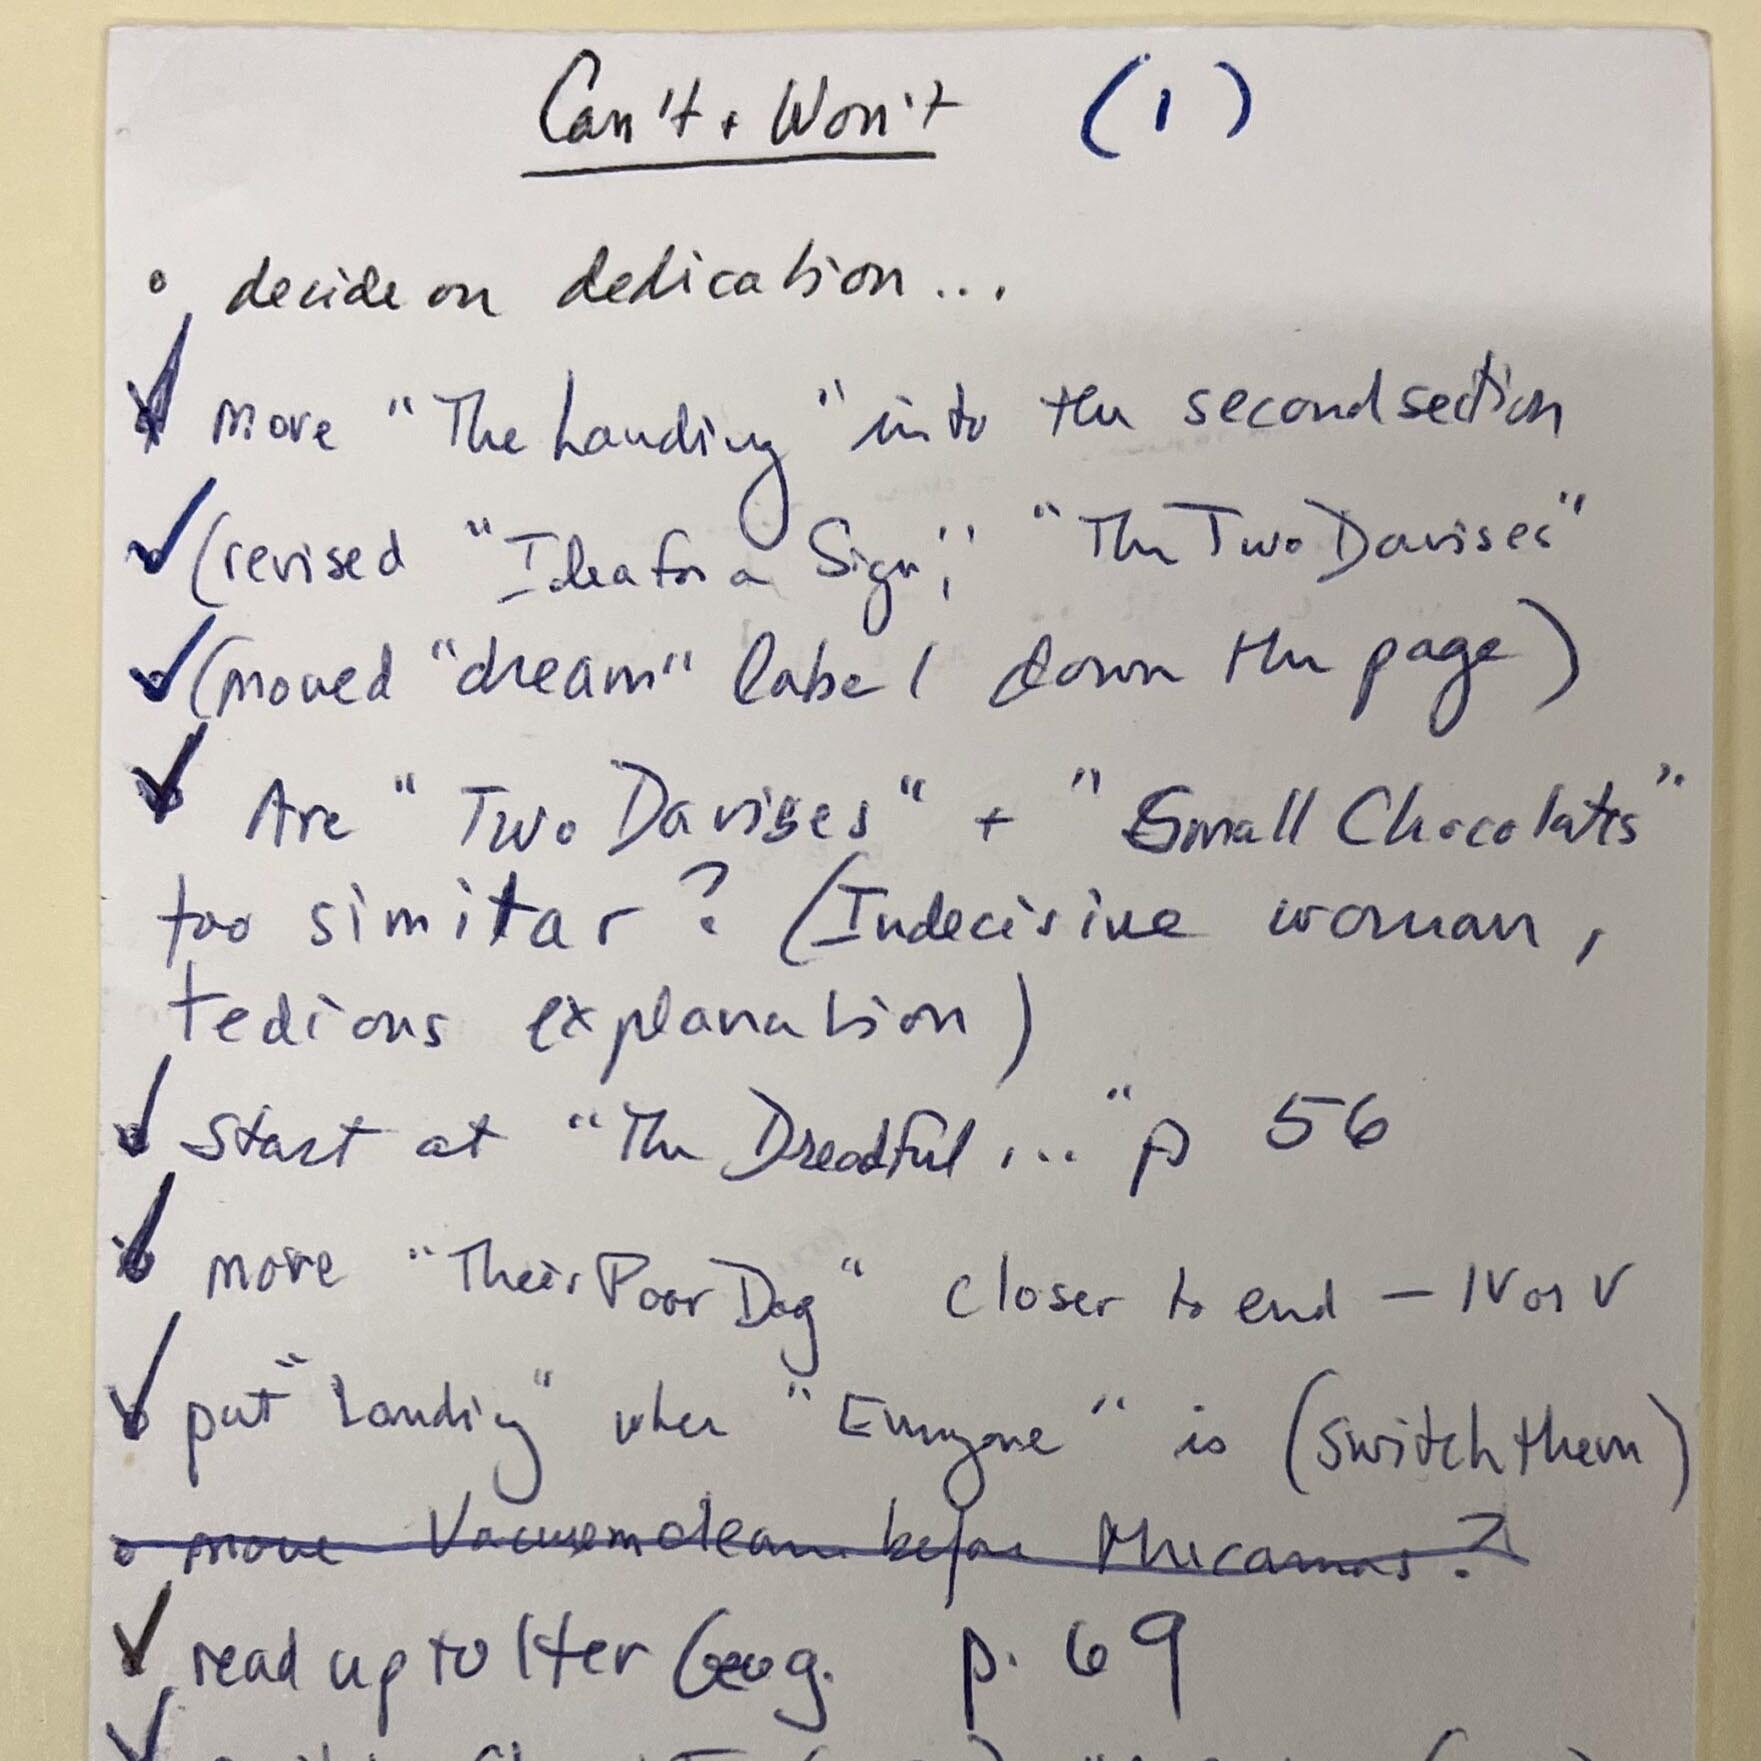 Can't + Won't (1)
• decide on dedication...
✓ move "The Landing" into the second section
✓ (revised "Idea for a Sign", "The Two Davises"
✓ (moved "dream" label down the page)
✓ Are "Two Davises" + "Small Chocolates"
too similar? (Indecisive woman,
tedious explanation)
✓ start at "The Dreadful..." p 56
✓ move "Their Poor Dog" closer to end – IV or V
✓ put "Landing" where "Everyone" is (switch them)
• move Vacuum before ?
✓ read up to Her Geog. p. 69